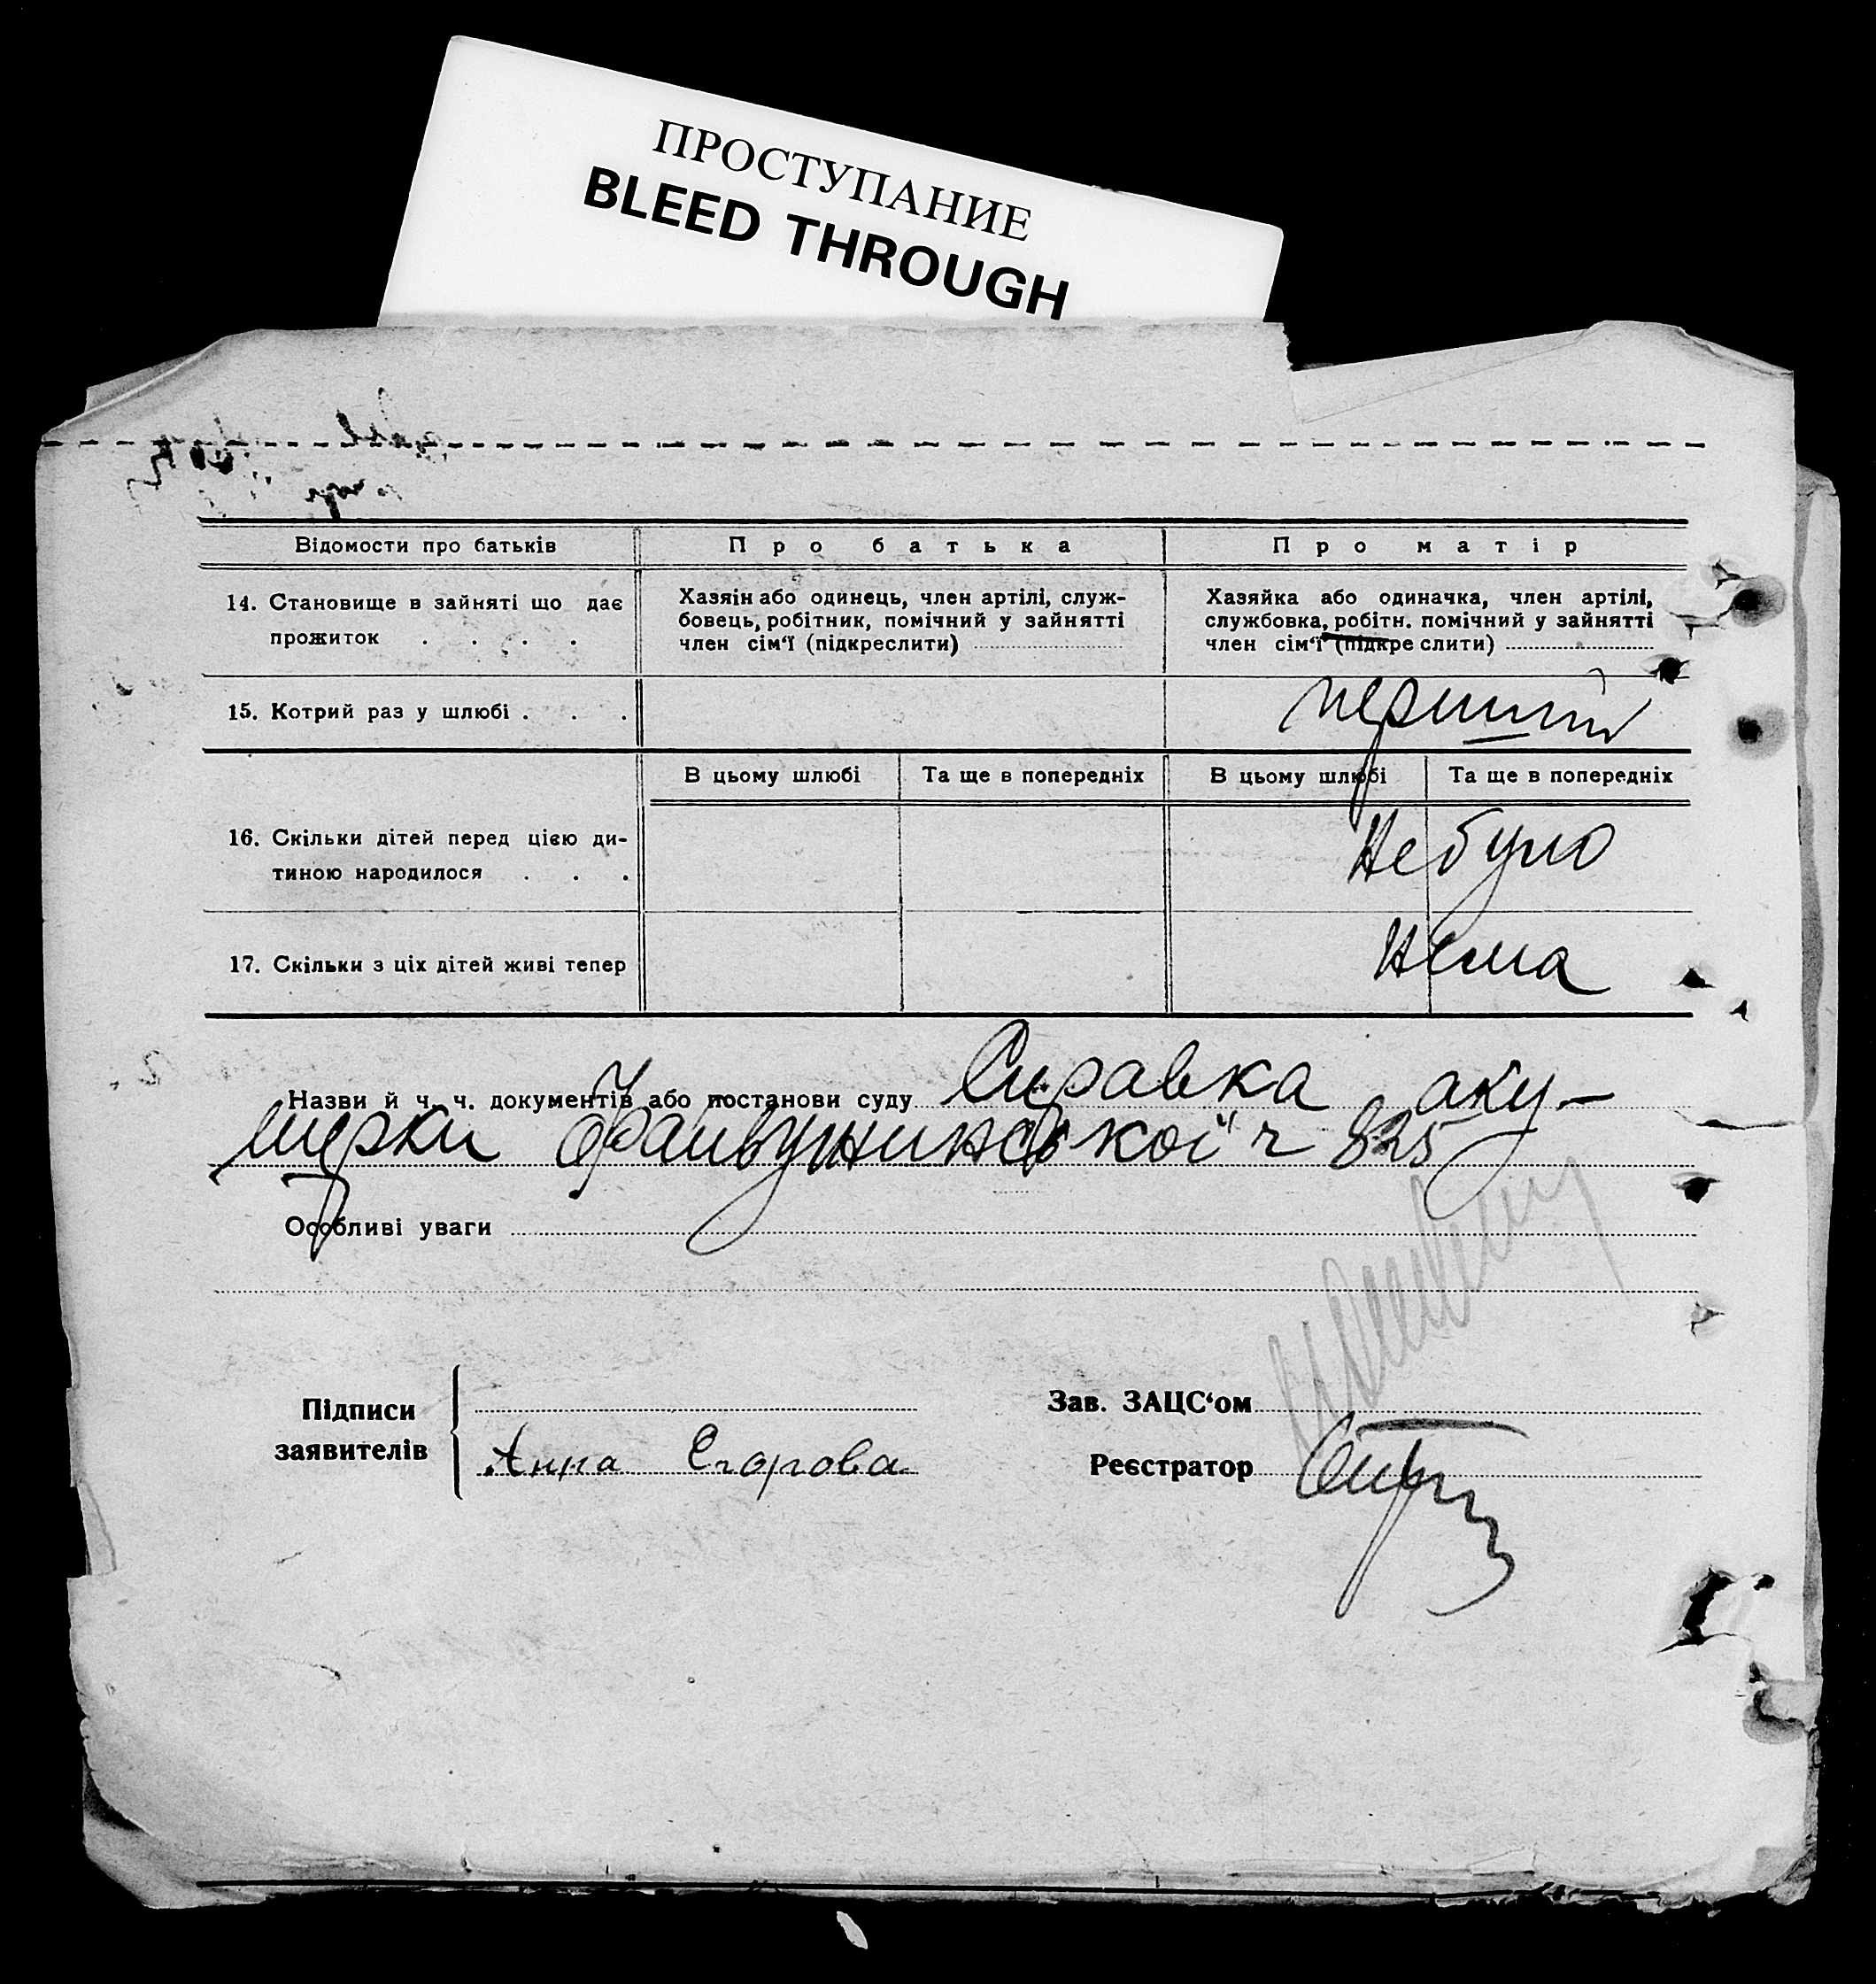 ПРОСТУПАНИЕ
BLEED THROUGH
Відомости про батьків
Про батька
Про матір
14. Становище в зайняті що дає
прожиток . . . .
Хазяін або одинець, член артілі, служ-
бовець, робітник, помічний у зайнятті
член сім‘ї (підкреслити)
Хазяйка або одиначка, член артілі,
службовка, робітн. помічний у зайнятті
член сім‘ї (підкре слити)
15. Котрий раз у шлюбі . . .
перший
В цьому шлюбі
Та ще в попередніх
В цьому шлюбі
Та ще в попередніх
16. Скільки дітей перед цією ди-
тиною народилося . . .
Не було
17. Скільки з ціх дітей живі тепер
Нема
Назви й ч. ч. документів або постанови суду Справка аку-
шерки ч 825
Особливі уваги
Підписи
заявителів
Анна Егорова
Зав. ЗАЦС‘ом
Реєстратор